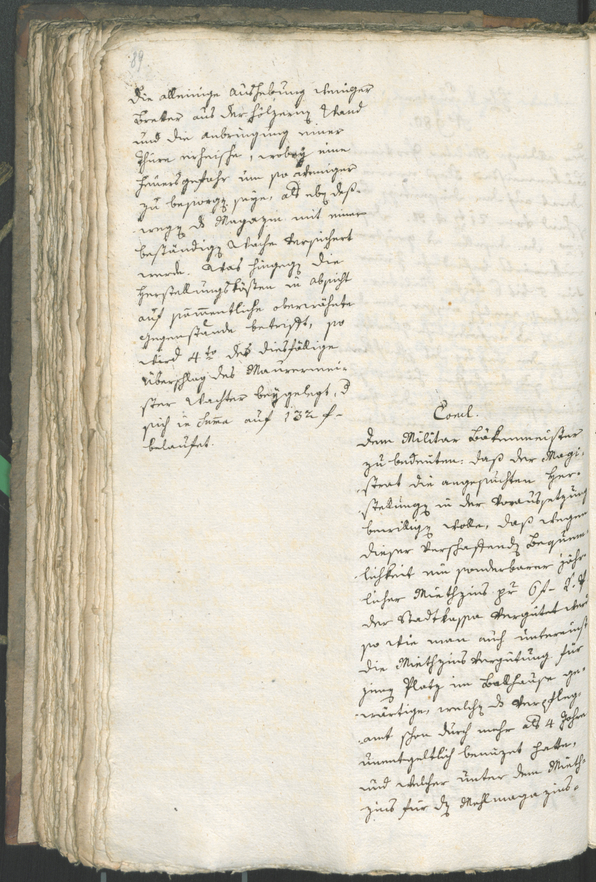 89
die alleinige Aushebung weniger
Breter aus der hölzern Wand
und die Anbringung einer
Thüre erheische, wobey eine
Feuersgefahr um so weniger
zu besorgen seye, als eben deß-
wegen das Magazin mit einer
beständigen Wache versichert
werde. Was hingegen die
Herstellungskösten in Absicht
auf sämmentliche oberwähnte
Gegenstände betrifft, so
wird 4to der diesfällige
Überschlag des Maurermei-
ster Wachter beygelegt, d
sich in Suma auf 132 f-
belaufet.
Concl.
Dem Militar Bökenmeister
zu bedeuten: daß der Magi-
strat die angesuchten Her-
stellungen in der Voraussetzung
bewilligen wolle, daß wegen
dieser verschaffenden Bequem-
lichkeit ein sonderbarer jähr-
licher Miethzins pr 6 f-
der Stadtkassa vergütet werd
so wie man auch untereinst
die Miethzinsvergütung für
jenen Platz im Ballhause ge-
wärtige, welchen das Verpfleg-
amt schon durch mehr als 4 Jahre
unentgeltlich benüzet hatte,
und welcher unter dem Mieth-
zins für das Mehlmagazins-